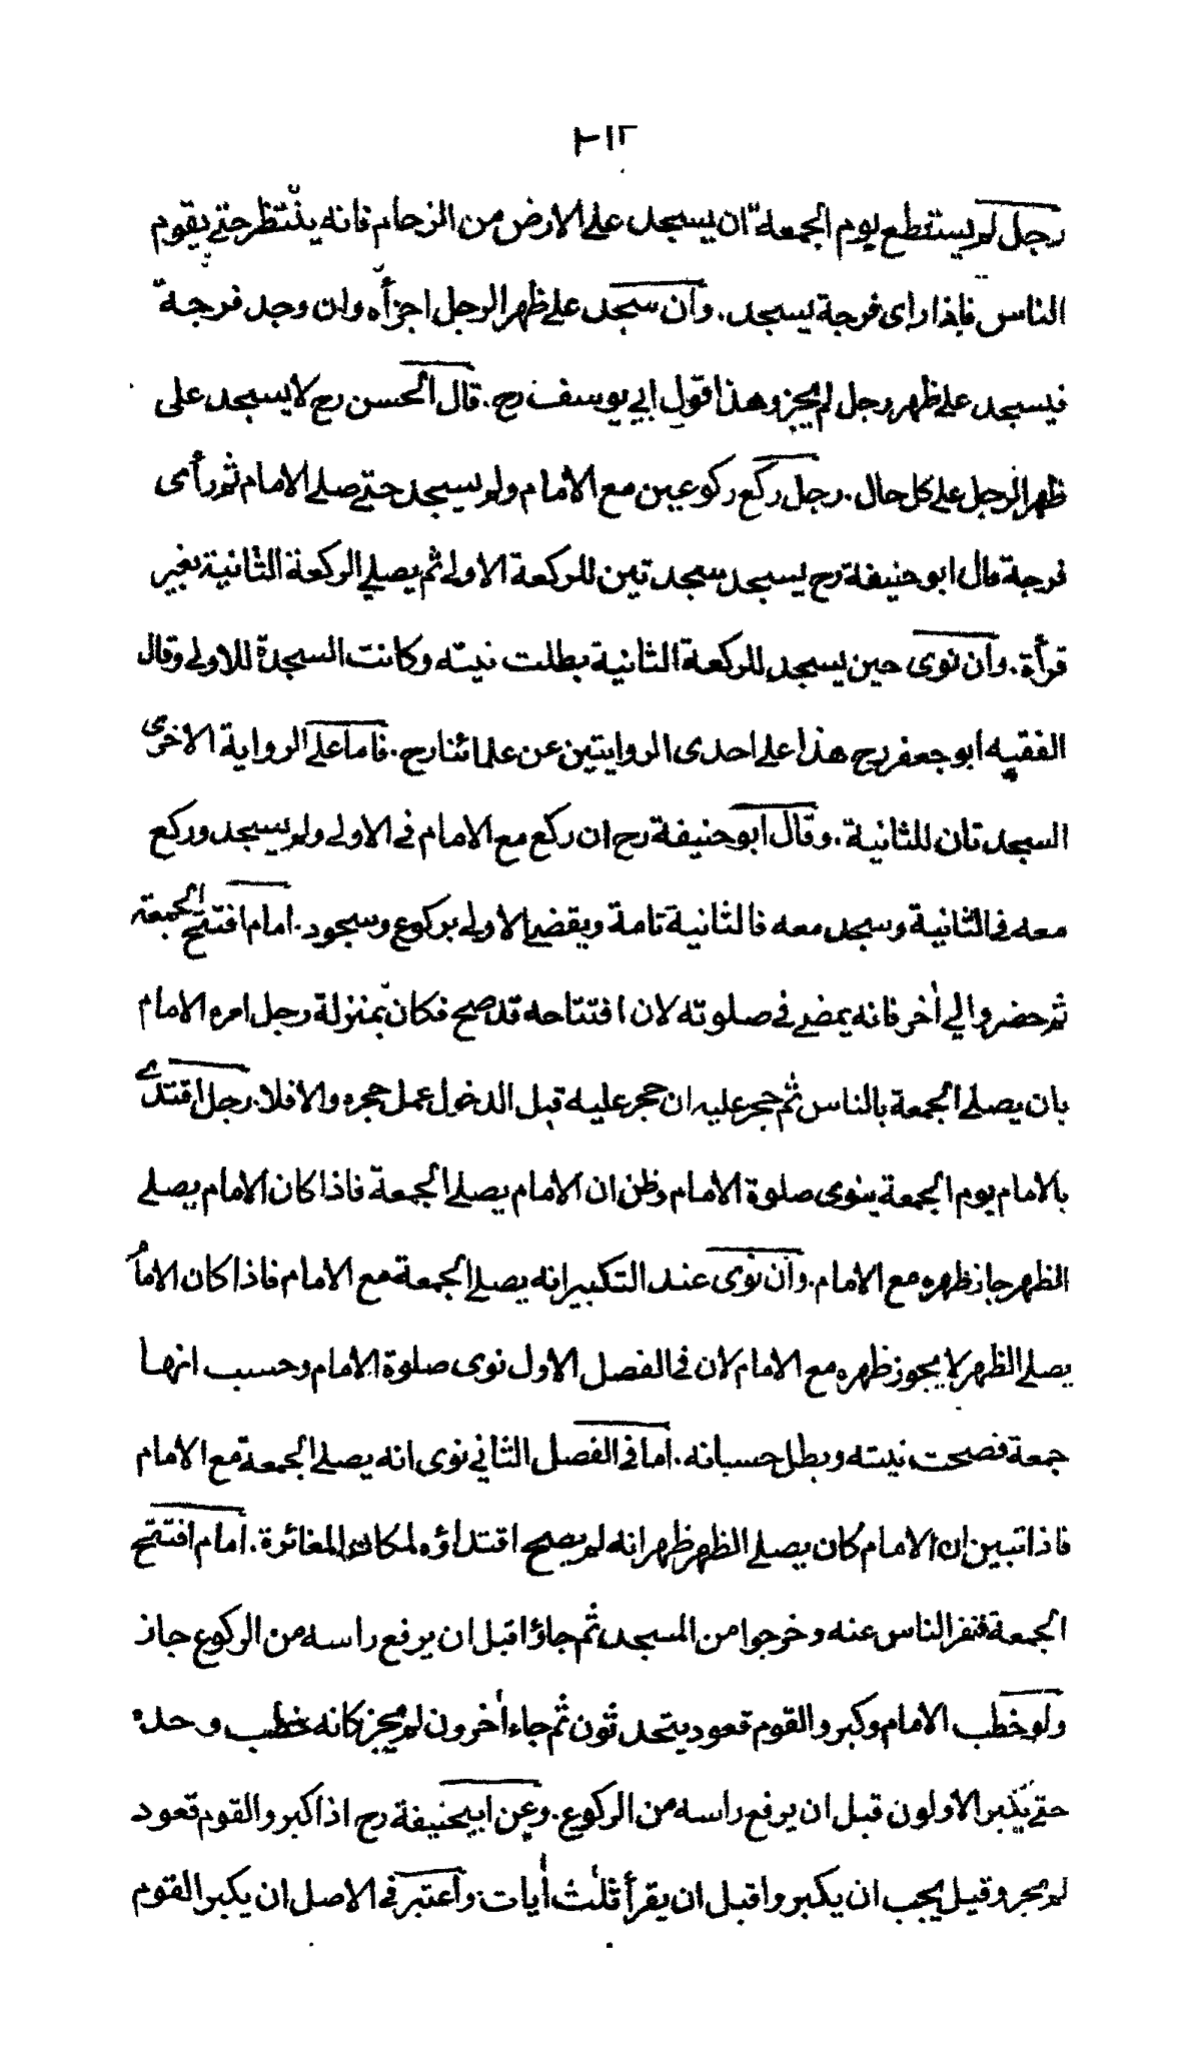 رجل لم يستطع يوم الجمعة ان يسجد على الارض من الزحام فانه ينتظر حتى يقوم
الناس فاذا رأى فرجة يسجد. وان سجد على ظهر الرجل اجزأه وان وجد فرجة
فيسجد على ظهر رجل لم يجز وهذا قول ابي يوسف رح. قال الحسن رح لا يسجد على
ظهر الرجل على كل حال. رجل ركع ركوعين مع الامام ولم يسجد حتى صلى الامام ثم رأى
فرجة قال ابو حنيفة رح يسجد سجدتين للركعة الاولى ثم يصلي الركعة الثانية بغير
قرأة. وان نوى حين يسجد للركعة الثانية بطلت نيته وكانت السجدة للاولى وقال
الفقيه ابو جعفر رح هذا على احدى الروايتين عن علمائنا رح. فاما على الرواية الاخرى
السجدتان للثانية. وقال ابو حنيفة رح ان ركع مع الامام في الاولى ولم يسجد وركع
معه في الثانية وسجد معه فالثانية تامة ويقضى الاولى بركوع وسجود. امام افتتح الجمعة
ثم حضر والي أخر فانه يمضى في صلوته لان افتتاحه قد صح فكان بمنزلة رجل امره الامام
بان يصلى الجمعة بالناس ثم حجر عليه ان حجر عليه قبل الدخول عمل حجره والا فلا. رجل اقتدى
بالامام يوم الجمعة ينوى صلوة الامام وظن ان الامام يصلى الجمعة فاذا كان الامام يصلى
الظهر جاز ظهره مع الامام. وان نوى عند التكبير انه يصلى الجمعة مع الامام فاذا كان الامام
يصلى الظهر لا يجوز ظهره مع الامام لان في الفصل الاول نوى صلوة الامام وحسب انها
جمعة فصحت نيته وبطل حسبانه. اما في الفصل الثاني نوى انه يصلى الجمعة مع الامام
فاذا تبين ان الامام كان يصلى الظهر ظهر انه لم يصح اقتداؤه لمكان المغائرة. امام افتتح
الجمعة فنفر الناس عنه وخرجوا من المسجد ثم جاؤا قبل ان يرفع راسه من الركوع جاز
ولو خطب الامام وكبر والقوم قعود يتحدثون ثم جاء أخرون لم يجز كانه خطب وحده
حتى يكبر الاولون قبل ان يرفع راسه من الركوع. وعن ابيحنيفة رح اذا كبر والقوم قعود
لم يجز وقيل يجب ان يكبروا قبل ان يقرأ ثلث أيات واعتبر في الاصل ان يكبر القوم